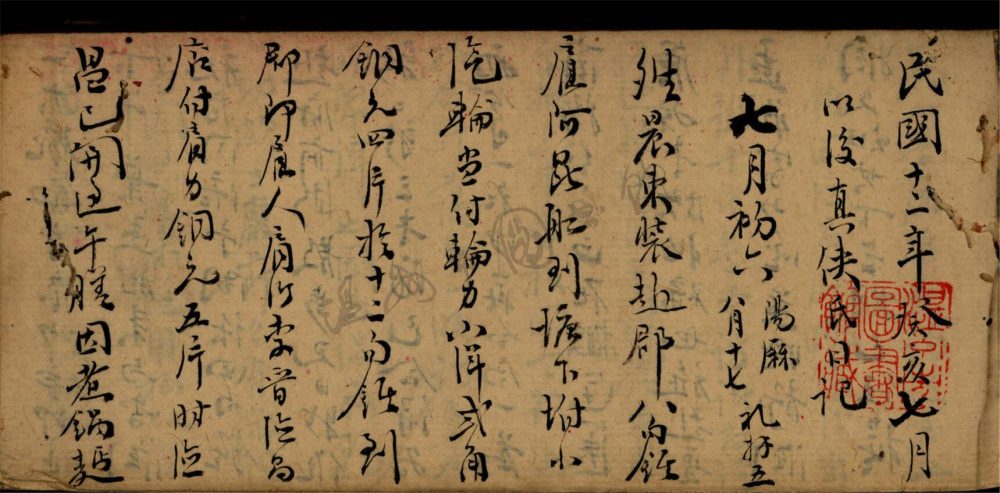 民國十二年癸亥七月
以後真俠氏日記
七月初六 陽曆八月十七 礼拜五
晨束裝赴郡八句鐘
雇阿昆船到塘下坿小
汽輪当付輪力小洋弍角
銅元四片於十二句鐘到
郡即雇人肩行李晋
店付肩力銅元五片时
已開過午膳因煮鍋麵
圖書
館藏